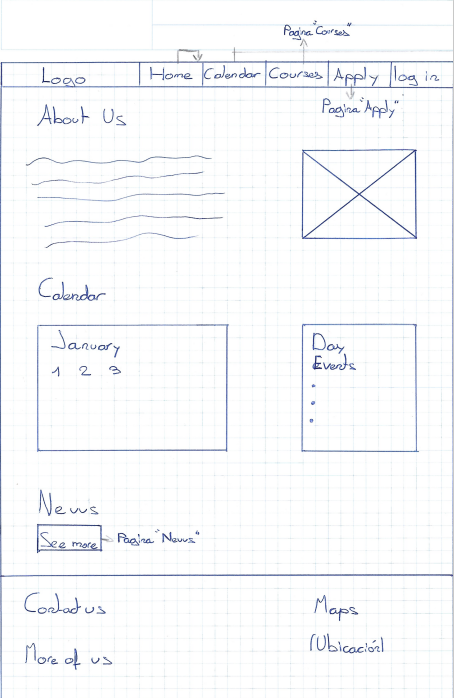 Pagina "Courses"
Logo Home Calendar Courses Apply log in
Pagina "Apply"
About Us
Calendar
January
1 2 3
Day
Events
News
See more Pagina "News"
Contact us
Maps
(Ubicación)
More of us